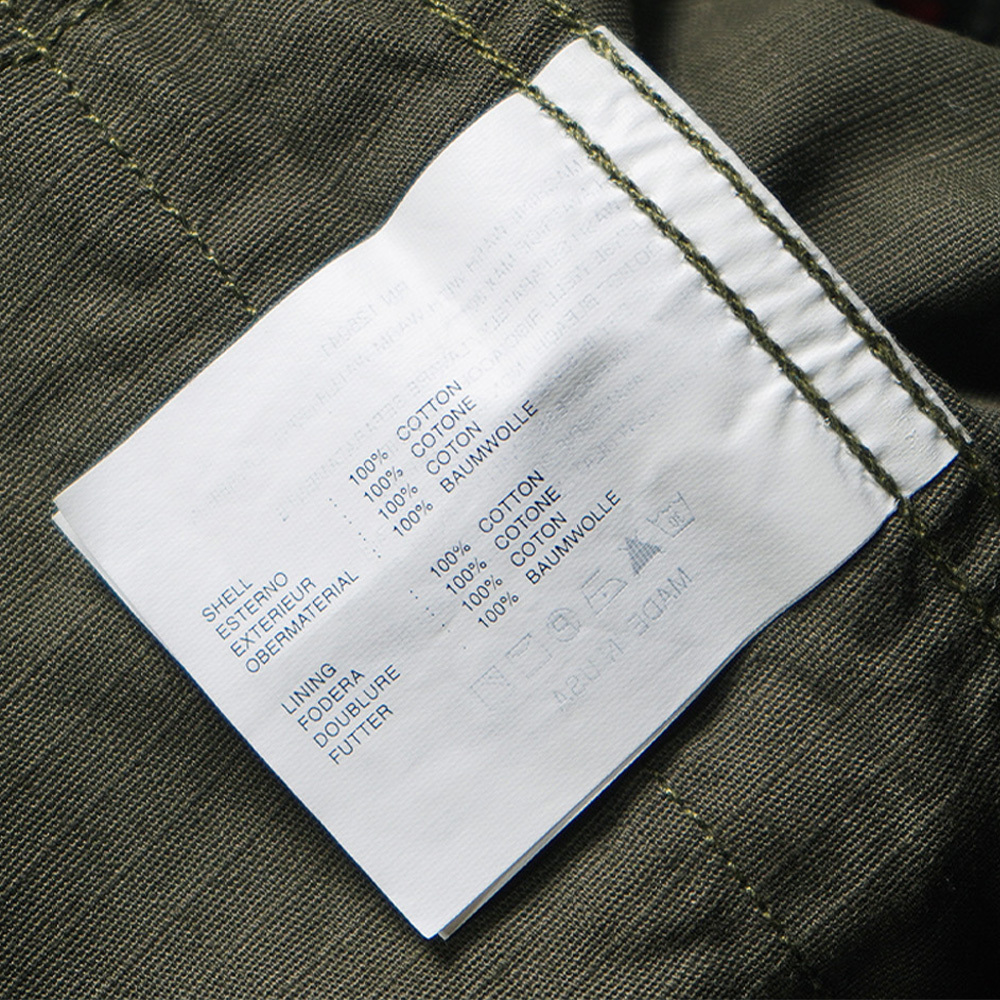 SHELL : 100% COTTON
ESTERNO : 100% COTONE
EXTERIEUR : 100% COTON
OBERMATERIAL : 100% BAUMWOLLE
LINING : 100% COTTON
FODERA : 100% COTONE
DOUBLURE : 100% COTON
FUTTER : 100% BAUMWOLLE
MADE IN USA